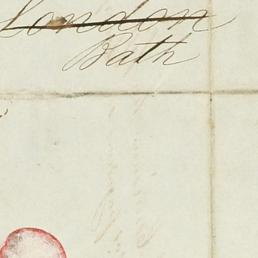 London
Bath